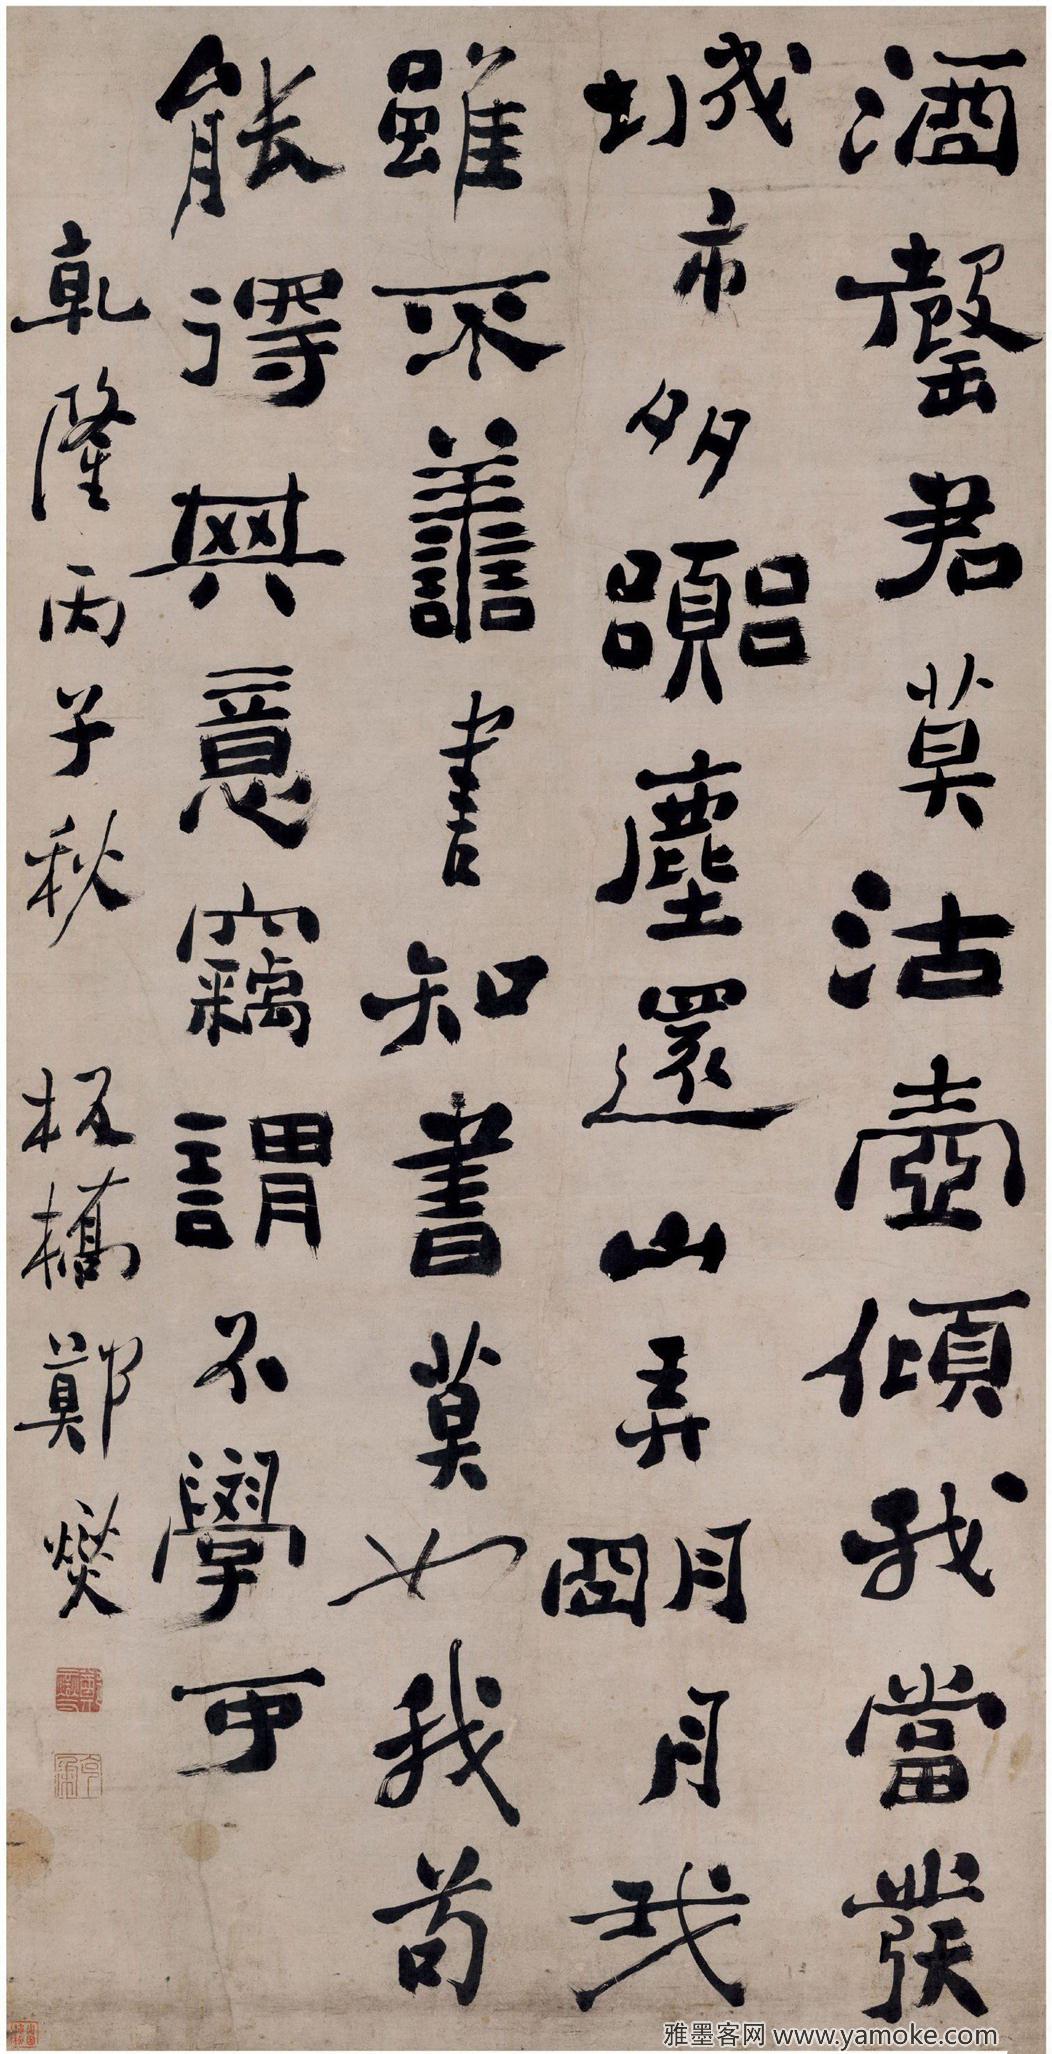 酒罄君莫沽壺傾我當發
城市多囂塵還山弄朙月我
雖不善書知書莫如我苟
能得其意竊謂不學可
乾隆丙子秋 板橋鄭燮
雅墨客网 www.yamoke.com